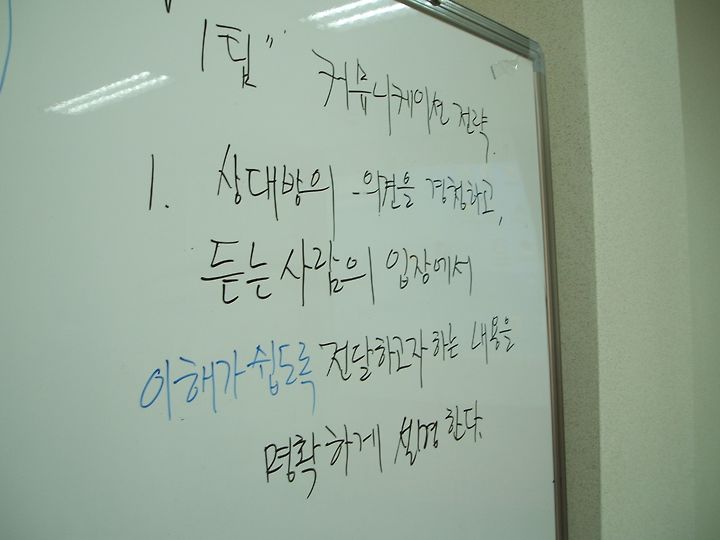 1팀"
커뮤니케이션 전략.
1. 상대방의 - 의견을 경청하고,
듣는 사람의 입장에서
이해가 쉽도록 전달하고자 하는 내용을
명확하게 설명한다.